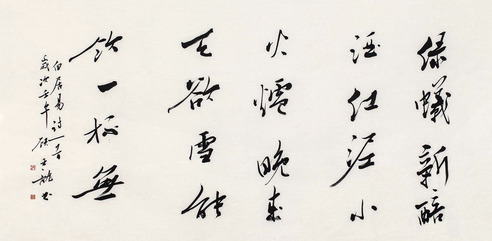 绿蟻新醅
酒红泥小
火爐晚来
天欲雪能
饮一杯無
白居易诗一首
歲次壬午书